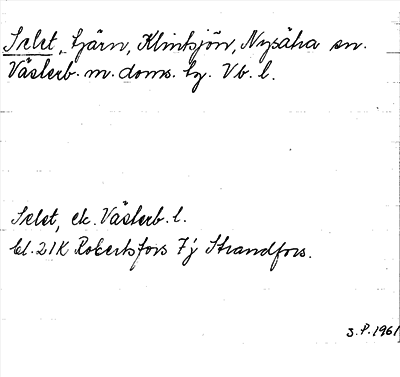 Selet, tjärn, Klintsjön, Nysätra sn.
Västerb. m. doms. tg. Vb. l.
Selet, ek. Västerb. l.
bl. 21K Robertsfors 7j Strandfors.
J.P. 1961